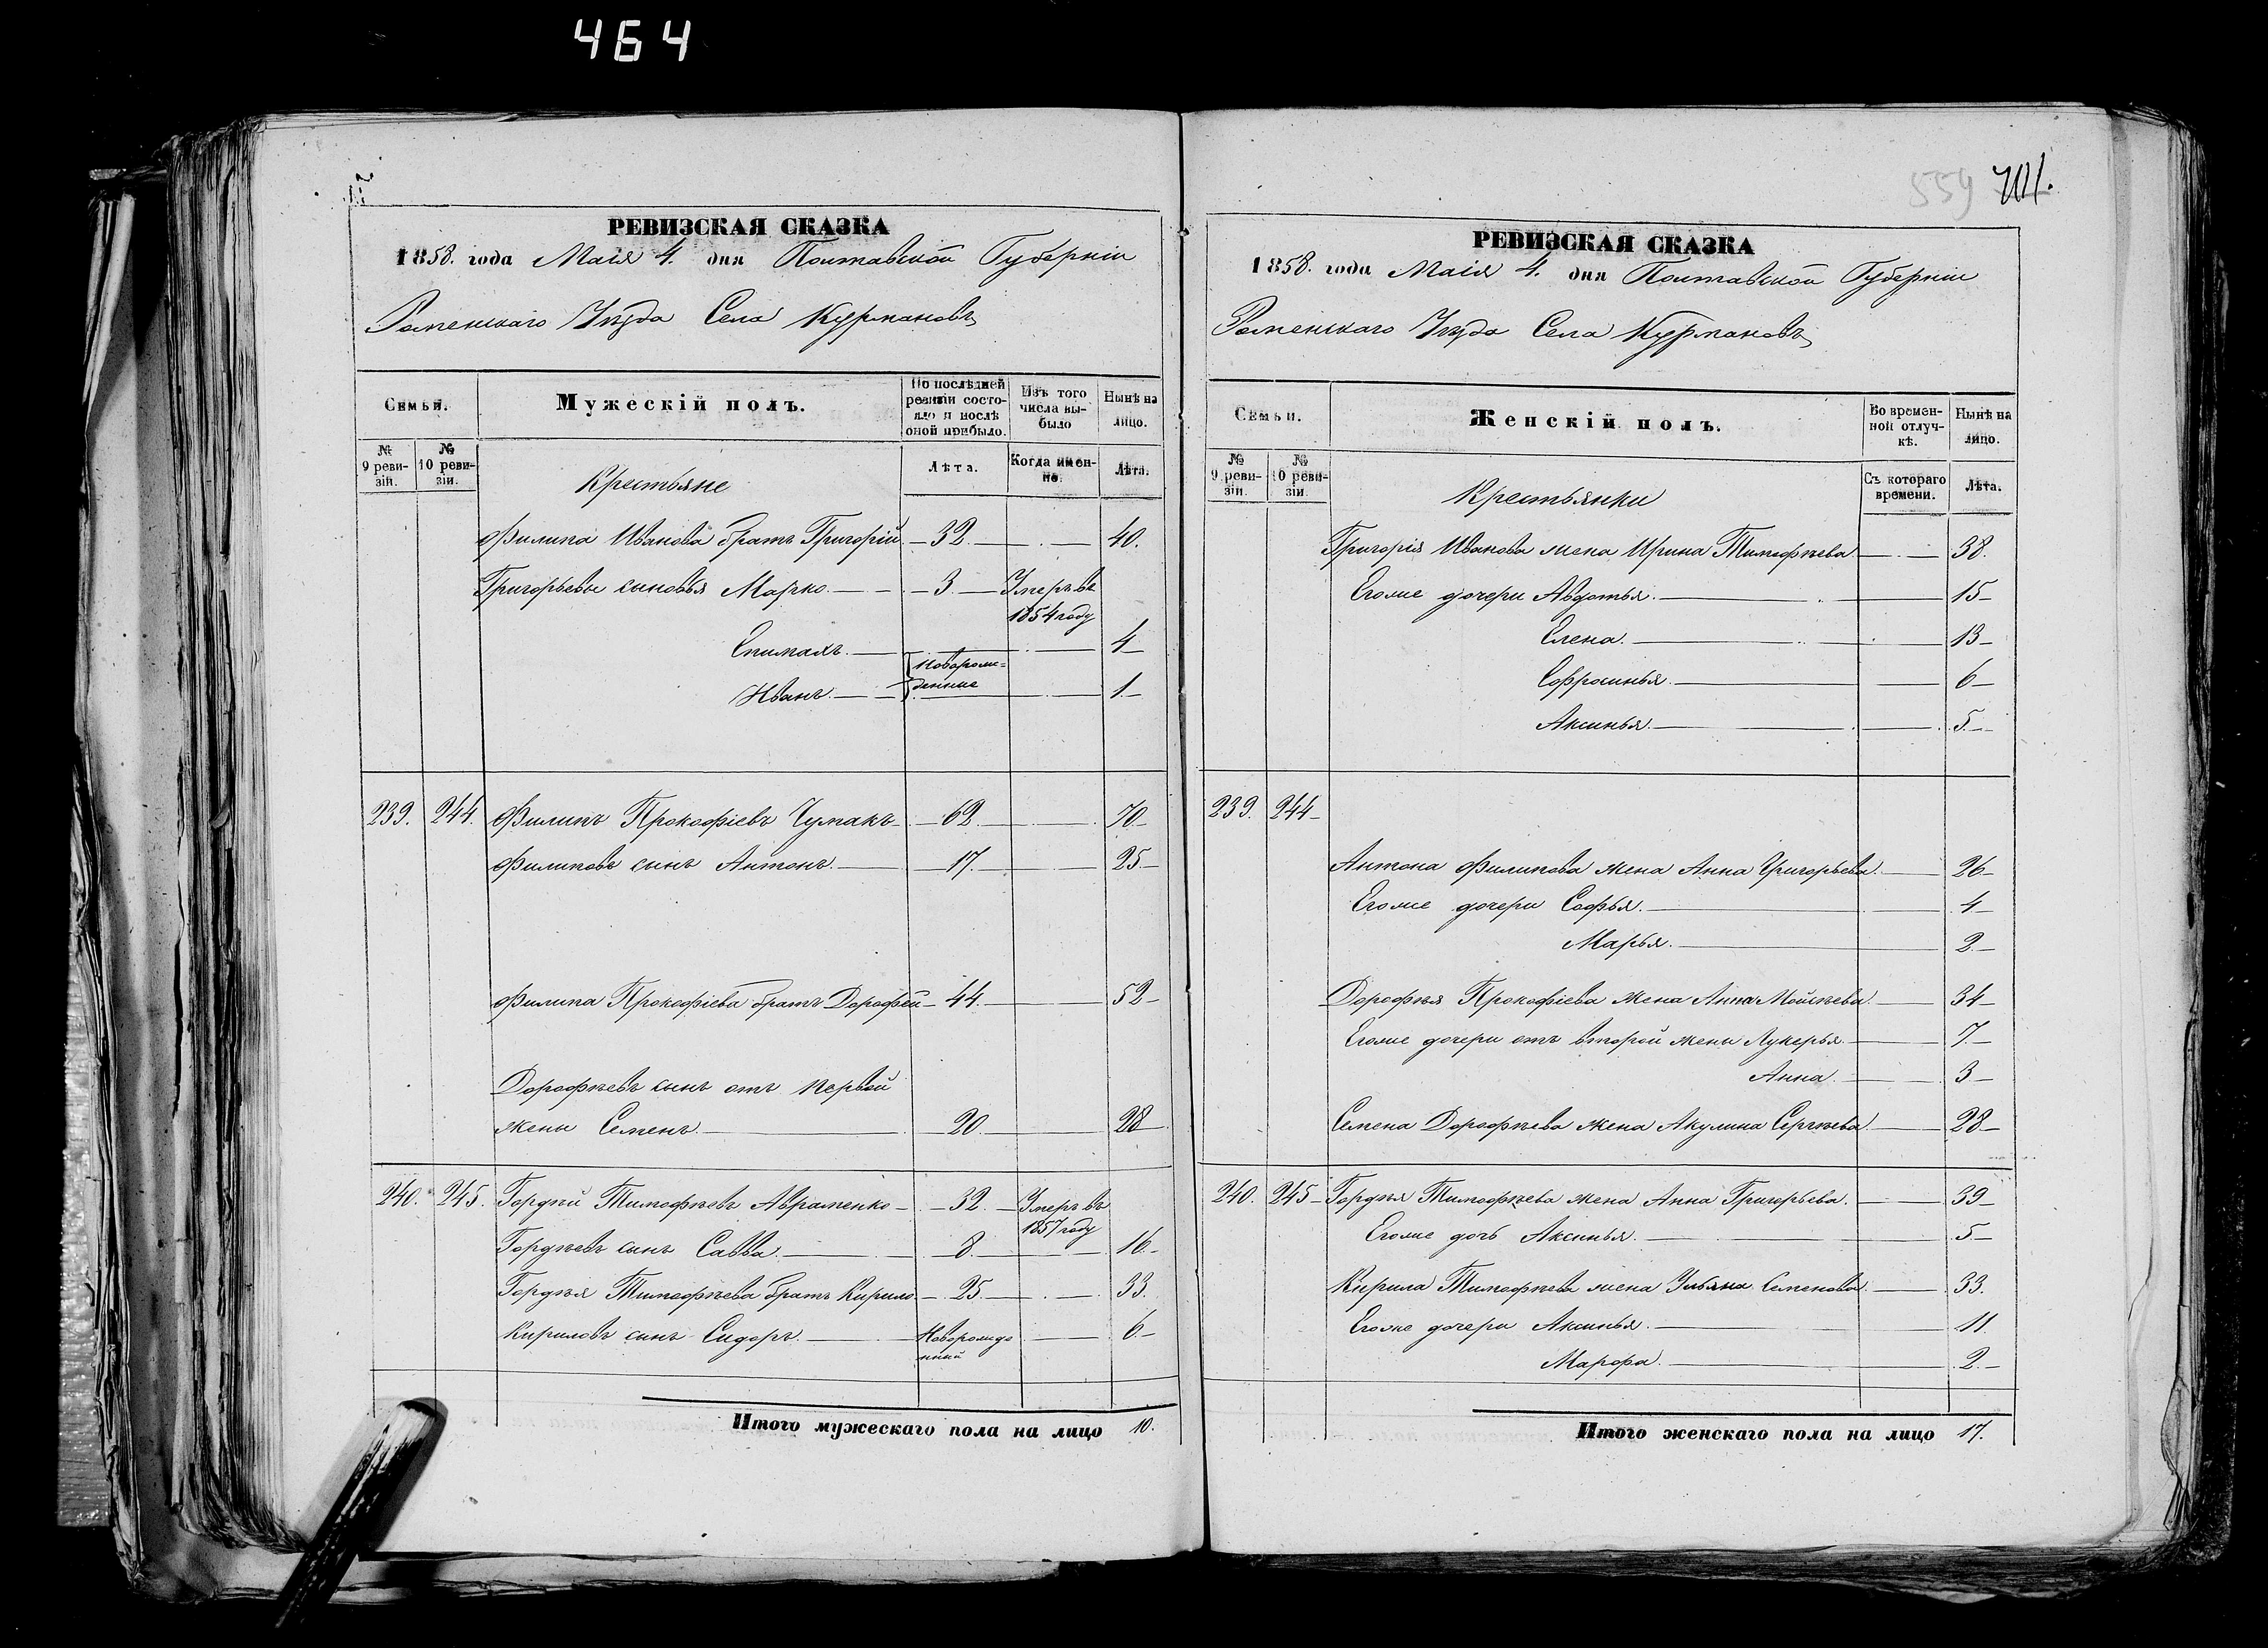 464
РЕВИЗСКАЯ СКАЗКА
1858. года Маія 4. дня Полтавской Губерніи
Роменскаго Уѣзда Села Курмановъ
Семьи.
Мужескій полъ.
По послѣдней ревизіи состояло и послѣ оной прибыло.
Изъ того числа выбыло
Нынѣ на лицо.
№ 9 ревизіи.
№ 10 ревизіи.
Крестьяне
Лѣта.
Когда именно.
Лѣта.
Филипа Иванова братъ Григорій 32 40.
Григорьевы сыновья Марко. 3 Умеръ въ 1854 году
Епимахъ. 4
Новорожденные
Иванъ. 1
239. 244. Филипъ Прокофіевъ Чумакъ 62 70
Филиповъ сынъ Антонъ. 17. 25
Филипа Прокофіева братъ Дорофѣй 44. 52
Дорофѣевъ сынъ отъ первой
жены Семенъ. 20. 28
240. 245. Гордѣй Тимофѣевъ Авраменко 32. Умеръ въ 1857 году
Гордѣевъ сынъ Савва. 8. 16
Гордѣя Тимофѣева братъ Кирило 25. 33.
Кириловъ сынъ Сидоръ. Новорожденный 6
Итого мужескаго пола на лицо 10.
559 701.
РЕВИЗСКАЯ СКАЗКА
1858. года Маія 4. дня Полтавской Губерніи
Роменскаго Уѣзда Села Курмановъ
Семьи.
Женскій полъ.
Во временной отлучкѣ.
Нынѣ на лицо.
№ 9 ревизіи.
№ 10 ревизіи.
Крестьянки
Съ котораго времени.
Лѣта.
Григорія Иванова жена Ирина Тимофѣева. 38.
Егоже дочери Авдотья. 15
Елена. 13
Софроинья. 6
Аксинья. 5
239. 244
Антона Филипова жена Анна Григорьева. 26
Егоже дочери Софья. 4
Марья. 2
Дорофѣя Прокофіева жена Анна Мойсѣева. 34
Егоже дочери отъ второй жены Лукерья. 7
Анна. 3
Семена Дорофѣева жена Акулина Сергѣева 28
240. 245 Гордѣя Тимофѣева жена Анна Григорьева. 39
Егоже дочь Аксинья. 5
Кирила Тимофѣева жена Ульяна Семенова. 33.
Егоже дочери Аксинья. 11.
Марфа. 2.
Итого женскаго пола на лицо 17.